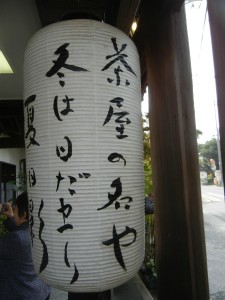 茶屋の名や
冬は日だまり
夏日影